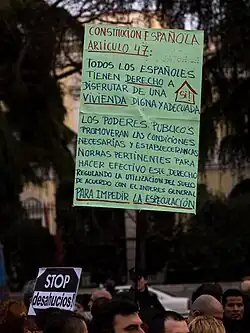 CONSTITUCIÓN ESPAÑOLA
ARTÍCULO 47:
TODOS LOS ESPAÑOLES
TIENEN DERECHO A
DISFRUTAR DE UNA
SÍ!
VIVIENDA DIGNA Y ADECUADA
LOS PODERES PÚBLICOS
PROMOVERAN LAS CONDICIONES
NECESARIAS Y ESTABLECERAN LAS
NORMAS PERTINENTES PARA
HACER EFECTIVO ESTE DERECHO
REGULANDO LA UTILIZACIÓN DEL SUELO
DE ACUERDO CON EL INTERES GENERAL
PARA IMPEDIR LA ESPECULACIÓN
STOP
desahucios!